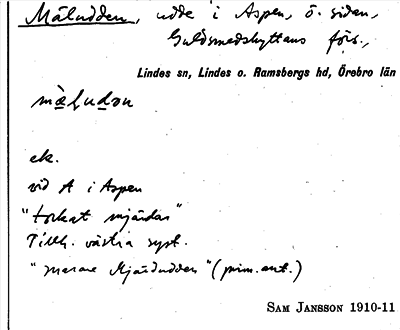 Mäludden, udde i Aspen, ö. sidan,
Guldsmedshyttans förs.,
Lindes sn, Lindes o. Ramsbergs hd, Örebro län
ek.
vid A i Aspen
"torkat mjärdar"
Tillh. västra syst.
"senare Mjärdudden" (prim. ant.)
SAM JANSSON 1910-11